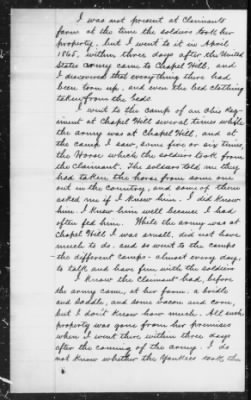 I was not present at Claimants
farm at the time the soldiers took her
property, but I went to it in April
1865, within three days after the United
States army came to Chapel Hill, and
I discovered that everything there had
been torn up, and even the bed clothing
taken from the beds.
I went to the camp of an Ohio Reg-
iment at Chapel Hill several times while
the army was at Chapel Hill, and at
the camp I saw, some five or six times,
the Horse which the soldiers took from
the Claimant. The soldiers told me they
had taken the horse from some one
out in the country, and some of them
asked me if I knew him. I did know
him. I knew him well because I had
often fed him. While the army was at
Chapel Hill I was small, did not have
much to do, and so went to the camps
- the different camps - almost every day,
to talk and have fun with the soldiers
I know the Claimant had, before
the army came, at her farm, a bridle
and saddle, and some bacon and corn,
but I don't know how much. All such
property was gone from her premises
when I went there within three days
after the coming of the army. I do
not know whether the Yankees took the